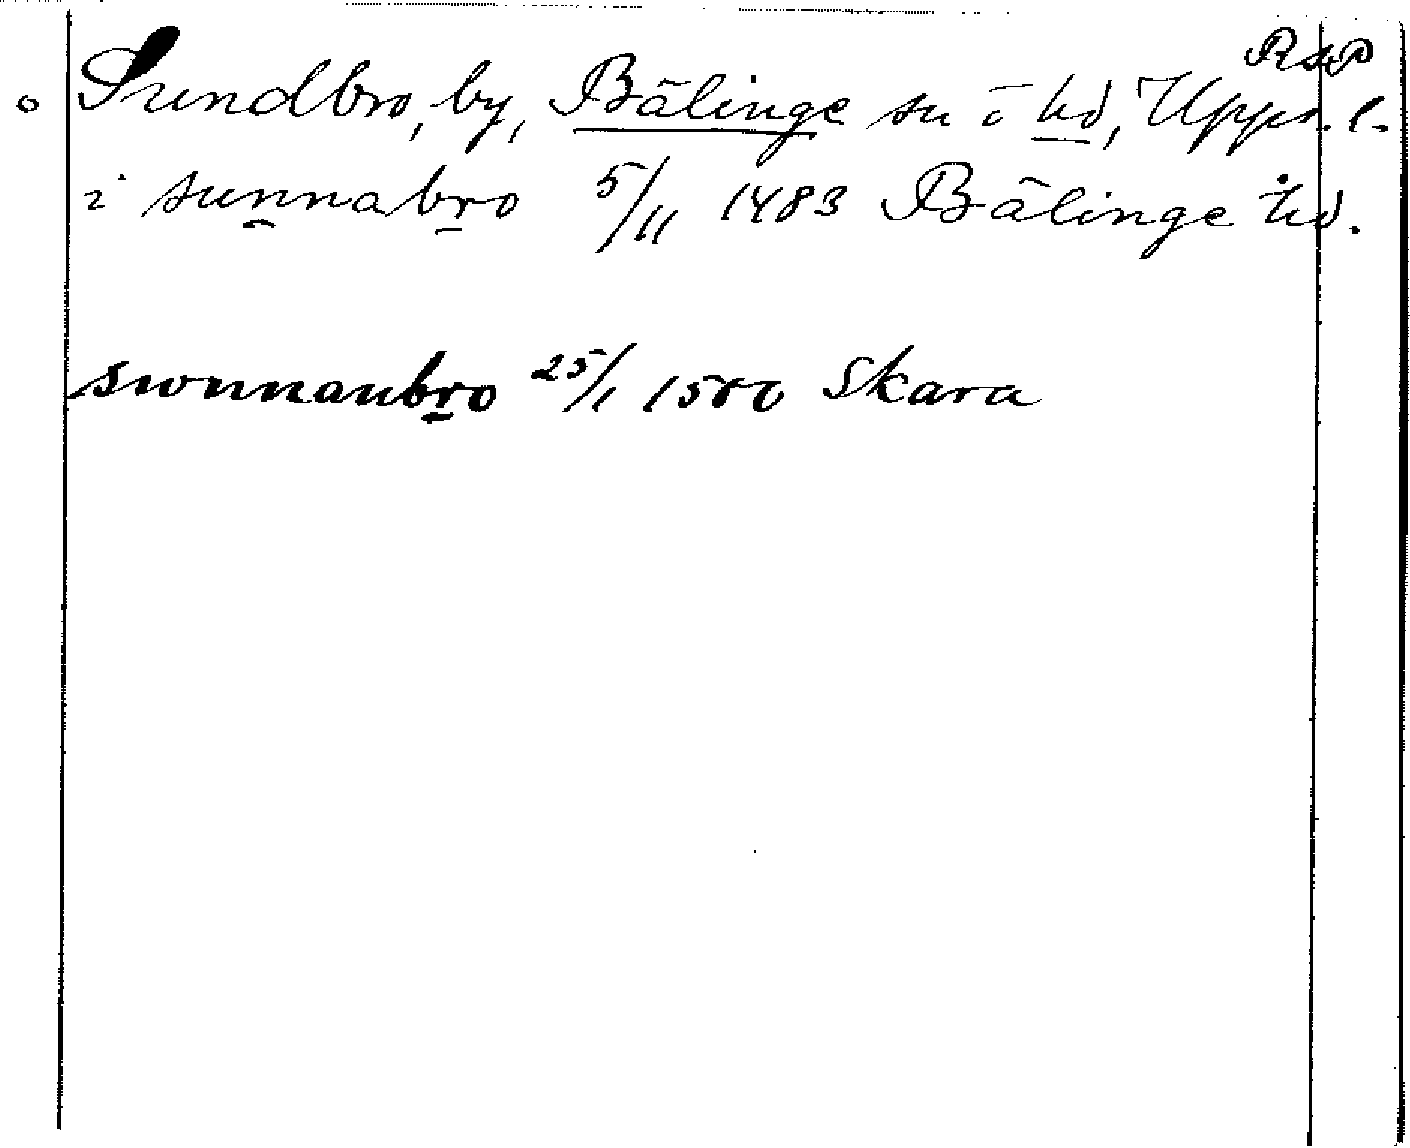 RAP
Sundbro, by, Bälinge sn i hd, Upps. l.
i sunnabro 5/11 1483 Bälinge hd.
swnnanbro 25/1 1500 Skara